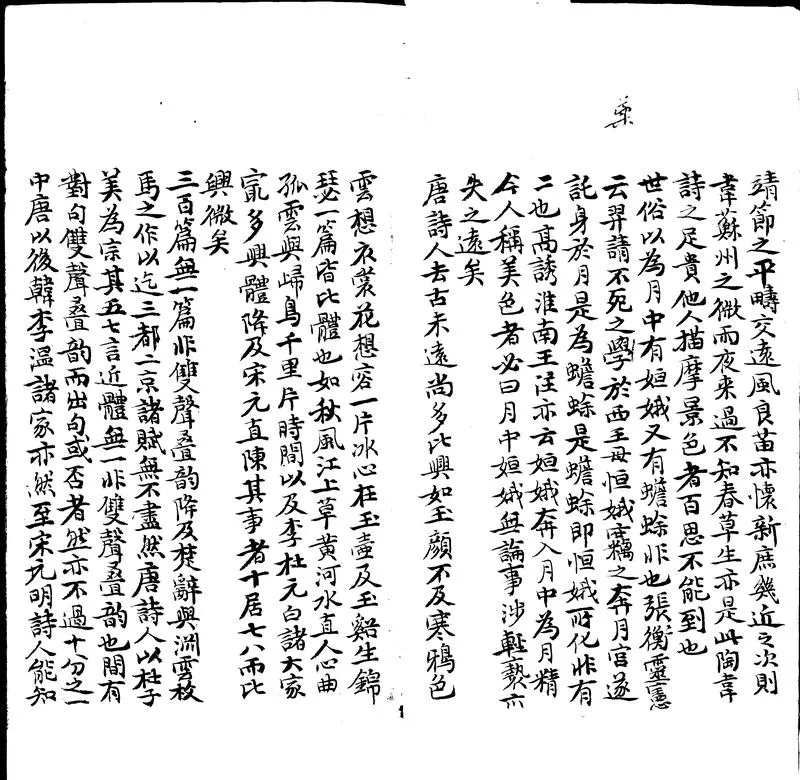 藥
靖節之平疇交遠風良苗亦懷新庶幾近之次則
韋蘇州之微雨夜來過不知春草生亦是此陶韋
詩之足貴他人描摩景色者百思不能到也
世俗以為月中有姮娥又有蟾蜍非也張衡靈憲
云羿請不死之學於西王母恒娥竊之奔月宮遂
託身於月是為蟾蜍是蟾蜍即恒娥所化非有
二也高誘淮南王注亦云姮娥奔入月中為月精
今人稱美色者必曰月中姮娥無論事涉輕褻亦
失之遠矣
唐詩人去古未遠尚多比興如玉顏不及寒鴉色
雲想衣裳花想容一片冰心在玉壺及玉谿生錦
瑟一篇皆比體也如秋風江上草黃河水直人心曲
孤雲與歸鳥千里片時間以及李杜元白諸大家
寔多興體降及宋元直陳其事者十居七八而比
興微矣
三百篇無一篇非雙聲疊韵降及楚辭與淵雲枚
馬之作以迄三都二京諸賦無不盡然唐詩人以杜子
美為宗其五七言近體無一非雙聲疊韵也間有
對句雙聲疊韵而出句或否者然亦不過十分之一
中唐以後韓李溫諸家亦然至宋元明詩人能知